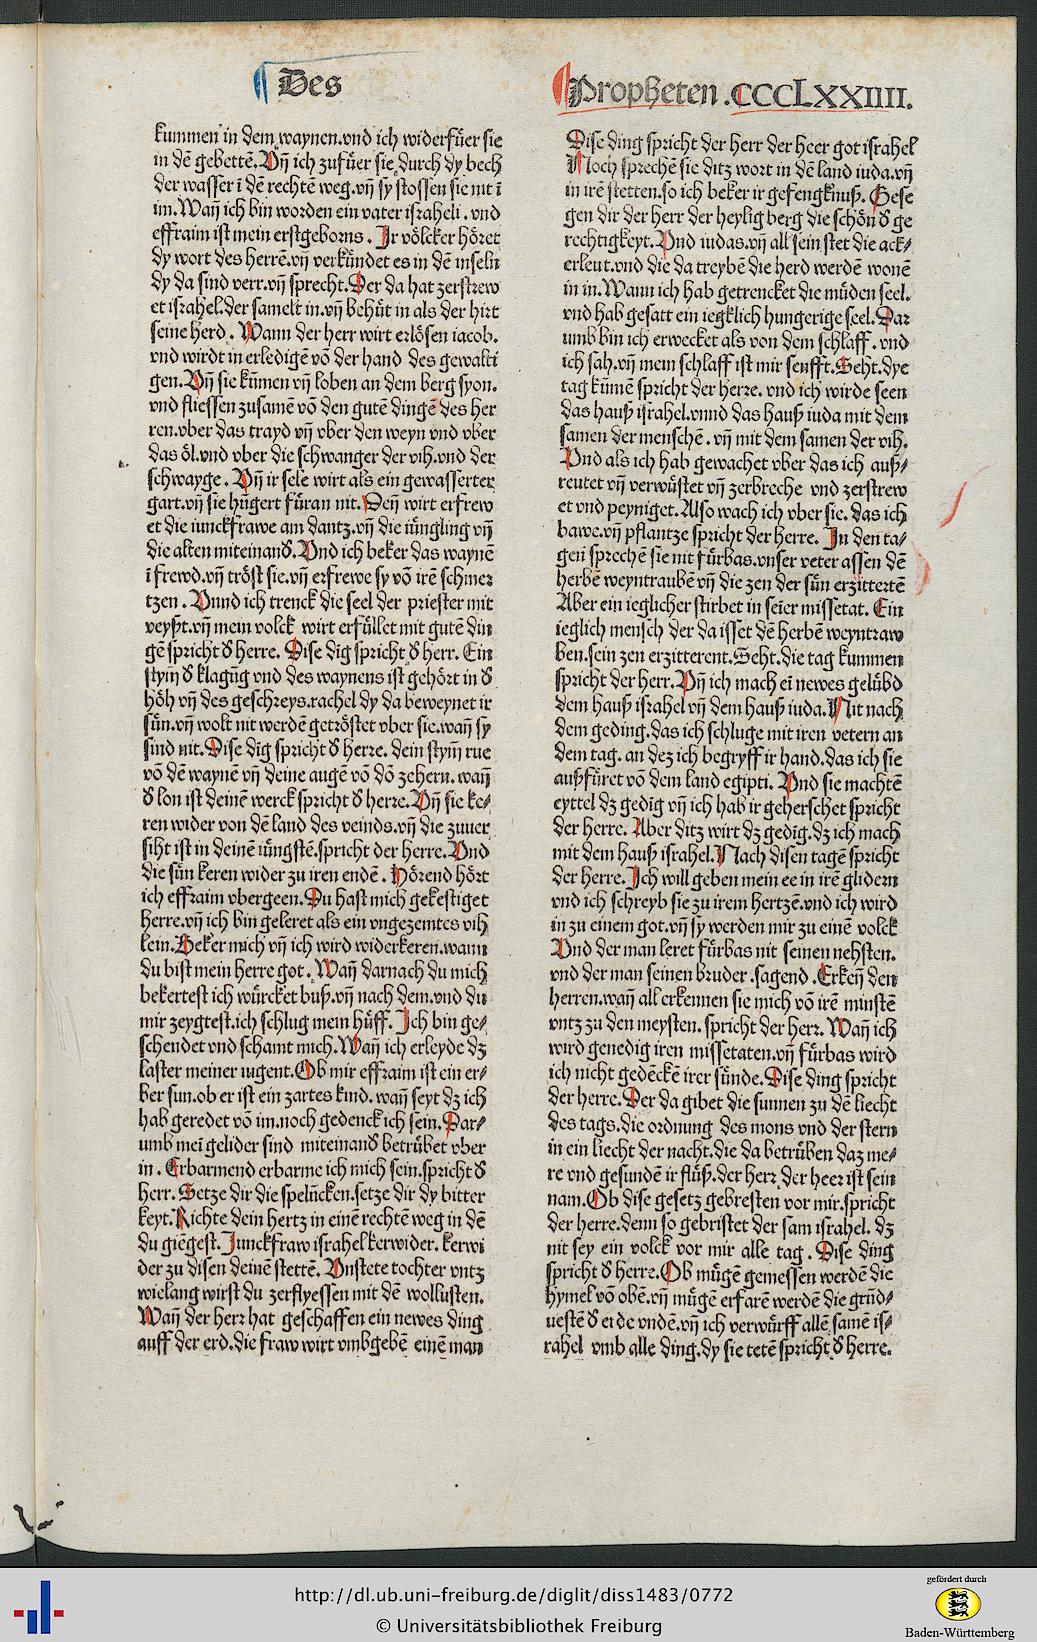 Des
Propheten .CCCLXXIIII.
kummen in dem waynen.vnd ich widerfüer sie
in dē gebettē. Vn̄ ich zufüer sie durch dy bech
der wasser ī dē rechtē weg.vn̄ sy stossen sie nit ī
im. Wan̄ ich bin worden ein vater israheli. vnd
effraim ist mein erstgeborns. Ir völcker höret
dy wort des herrē.vn̄ verkündet es in dē inseln
dy da sind verr.vn̄ sprecht. Der da hat zerstrew
et israhel.der samelt in.vn̄ behüt in als der hirt
seine herd. Wann der herr wirt erlösen iacob.
vnd wirdt in erledigē vō der hand des gewalti
gen. Vn̄ sie kūmen vn̄ loben an dem berg syon.
vnd fliessen zusamē vō den gutē dingē des her
ren.vber das trayd vn̄ vber den weyn vnd vber
das öl.vnd vber die schwanger der vih.vnd der
schwayge. Vn̄ ir sele wirt als ein gewasserter
gart.vn̄ sie hūgert füran nit. Deñ wirt erfrew
et die iunckfrawe am dantz.vn̄ die iüngling vn̄
die alten miteinand̄. Vnd ich beker das waynē
ī frewd.vn̄ tröst sie.vn̄ erfrewe sy vō irē schmer
tzen. Vnnd ich trenck die seel der priester mit
veyßt.vn̄ mein volck wirt erfüllet mit gutē din
gē spricht d̄ herre. Dise dīg spricht d̄ herr. Ein
stym̄ d̄ klagūg vnd des waynens ist gehört in d̄
höh vn̄ des geschreys.rachel dy da beweynet ir
sün.vn̄ wolt nit werdē getröstet vber sie.wan̄ sy
sind nit. Dise dīg spricht d̄ herre. dein stym̄ rue
vō dē waynē vn̄ deine augē vō dō zehern. wan̄
d̄ lon ist deinē werck spricht d̄ herre. Vn̄ sie ke⸗
ren wider von dē land des veinds.vn̄ die zuuer
siht ist in deinē iüngstē.spricht der herre. Vnd
die sün keren wider zu iren endē. Hörend hört
ich effraim vbergeen. Du hast mich gekestiget
herre.vn̄ ich bin geleret als ein vngezemtes vih
lein. Beker mich vn̄ ich wird widerkeren.wann
du bist mein herre got. Wan̄ darnach du mich
bekertest ich würcket buß.vn̄ nach dem.vnd du
mir zeygtest.ich schlug mein hüff. Ich bin ge⸗
schendet vnd schamt mich. Wan̄ ich erleyde dz
laster meiner iugent. Ob mir effraim ist ein er⸗
ber sun.ob er ist ein zartes kind. wan̄ seyt dz ich
hab geredet vō im.noch gedenck ich sein. Dar⸗
umb meī gelider sind miteinand̄ betrübet vber
in. Erbarmend erbarme ich mich sein.spricht d̄
herr. Setze dir die spelūcken.setze dir dy bitter
keyt. Richte dein hertz in einē rechtē weg in dē
du giēgest. Junckfraw israhel kerwider. kerwi
der zu disen deinē stettē. Vnstete tochter vntz
wielang wirst du zerflyessen mit dē wollusten.
Wan̄ der herr hat geschaffen ein newes ding
auff der erd.die fraw wirt vmbgebē einē man
Dise ding spricht der herr der heer got israhel
Noch sprechē sie ditz wort in dē land iuda.vn̄
in irē stetten.so ich beker ir gefengknuß. Gese
gen dir der herr der heylig berg die schön d̄ ge
rechtigkeyt. Vnd iudas.vn̄ all sein stet die ack⸗
erleut.vnd die da treybē die herd werdē wonē
in in. Wann ich hab getrencket die müden seel.
vnd hab gesatt ein iegklich hungerige seel. Dar
umb bin ich erwecket als von dem schlaff. vnd
ich sah.vn̄ mein schlaff ist mir senfft. Seht.dye
tag kūmē spricht der herre. vnd ich wirde seen
das hauß israhel.vnnd das hauß iuda mit dem
samen der menschē. vn̄ mit dem samen der vih.
Vnd als ich hab gewachet vber das ich auß⸗
reutet vn̄ verwüstet vn̄ zerbreche vnd zerstrew
et vnd peyniget. Also wach ich vber sie. das ich
bawe.vn̄ pflantze spricht der herre. In den ta⸗
gen sprechē sie nit fürbas.vnser veter assen dē
herbē weyntraubē vn̄ die zen der sün erzittertē
Aber ein ieglicher stirbet in seīer missetat. Ein
ieglich mensch der da isset dē herbē weyntraw
ben.sein zen erzitterent. Seht.die tag kummen
spricht der herr. Vn̄ ich mach eī newes gelübd
dem hauß israhel vn̄ dem hauß iuda. Nit nach
dem geding.das ich schluge mit iren vetern an
dem tag. an dez ich begryff ir hand.das ich sie
außfüret vō dem land egipti. Vnd sie machtē
eyttel dz gedīg vn̄ ich hab ir geherschet spricht
der herre. Aber ditz wirt dz gedīg.dz ich mach
mit dem hauß israhel. Nach disen tagē spricht
der herre. Ich will geben mein ee in irē glidern
vnd ich schreyb sie zu irem hertzē.vnd ich wird
in zu einem got.vn̄ sy werden mir zu einē volck
Vnd der man leret fürbas nit seinen nehsten.
vnd der man seinen bruder .sagend. Erken̄ den
herren.wan̄ all erkennen sie mich vō irē minstē
vntz zu den meysten. spricht der herr. Wan̄ ich
wird genedig iren missetaten.vn̄ fürbas wird
ich nicht gedēckē irer sünde. Dise ding spricht
der herre. Der da gibet die sunnen zu dē liecht
des tags.die ordnung des mons vnd der stern
in ein liecht der nacht.die da betrüben daz me⸗
re vnd gesundē ir flüß.der herr der heer ist sein
nam. Ob dise gesetz gebresten vor mir.spricht
der herre.denn so gebristet der sam israhel. dz
nit sey ein volck vor mir alle tag. Dise ding
spricht d̄ herre. Ob mügē gemessen werdē die
hymel vō obē.vn̄ mügē erfarē werdē die grūd⸗
uestē d̄ erde vndē.vn̄ ich verwürff allē samē is⸗
rahel vmb alle ding.dy sie tetē spricht d̄ herre.
http://dl.ub.uni-freiburg.de/diglit/diss1483/0772
© Universitätsbibliothek Freiburg
gefördert durch
Baden-Württemberg